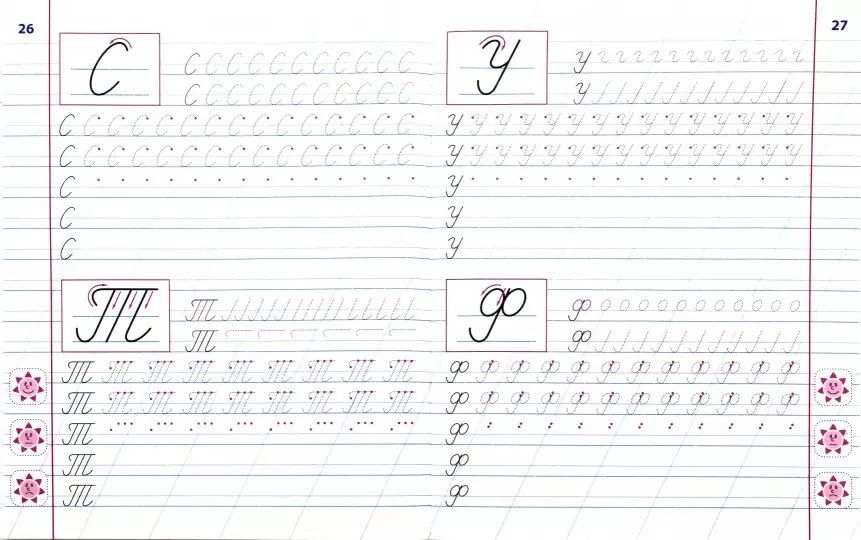 26
С
С С С С С С С С С С С
С С С С С С С С С С С
С С С С С С С С С С С С С С С
С С С С С С С С С С С С С С С
С
С
С
Т
Т
Т
Т Т Т Т Т Т Т Т Т
Т Т Т Т Т Т Т Т Т
Т
Т
Т
27
У
У
У
У У У У У У У У У У У У У У У
У У У У У У У У У У У У У У У
У
У
У
ф
ф
ф
ф ф ф ф ф ф ф ф ф ф ф ф
ф ф ф ф ф ф ф ф ф ф ф ф
ф
ф
ф